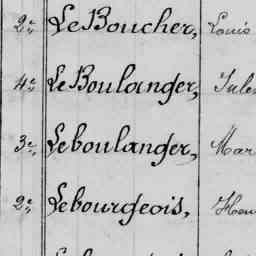 2e LeBoucher, Louis
4e LeBoulanger, Jules
3e Leboulanger, Mar
2e Lebourgeois, Hen